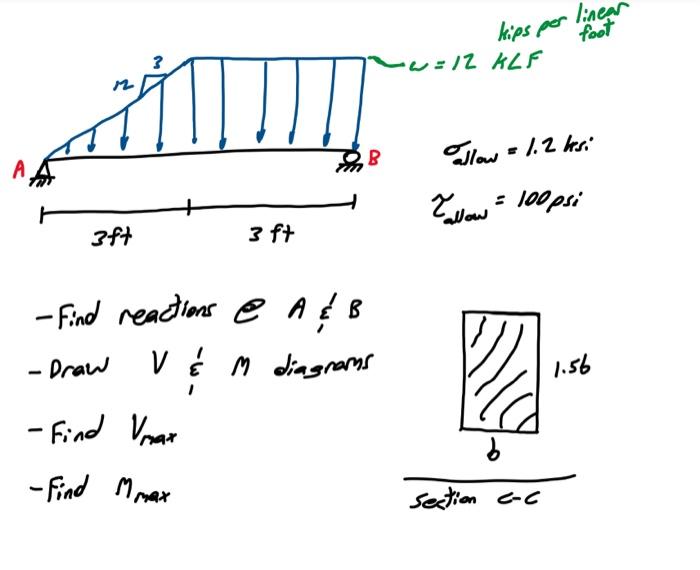 kips per linear foot
w = 12 KLF
3
12
A
B
3ft
3 ft
σallow = 1.2 ksi
τallow = 100psi
- Find reactions @ A & B
- Draw V & M diagrams
- Find Vmax
- Find Mmax
1.5b
b
Section C-C